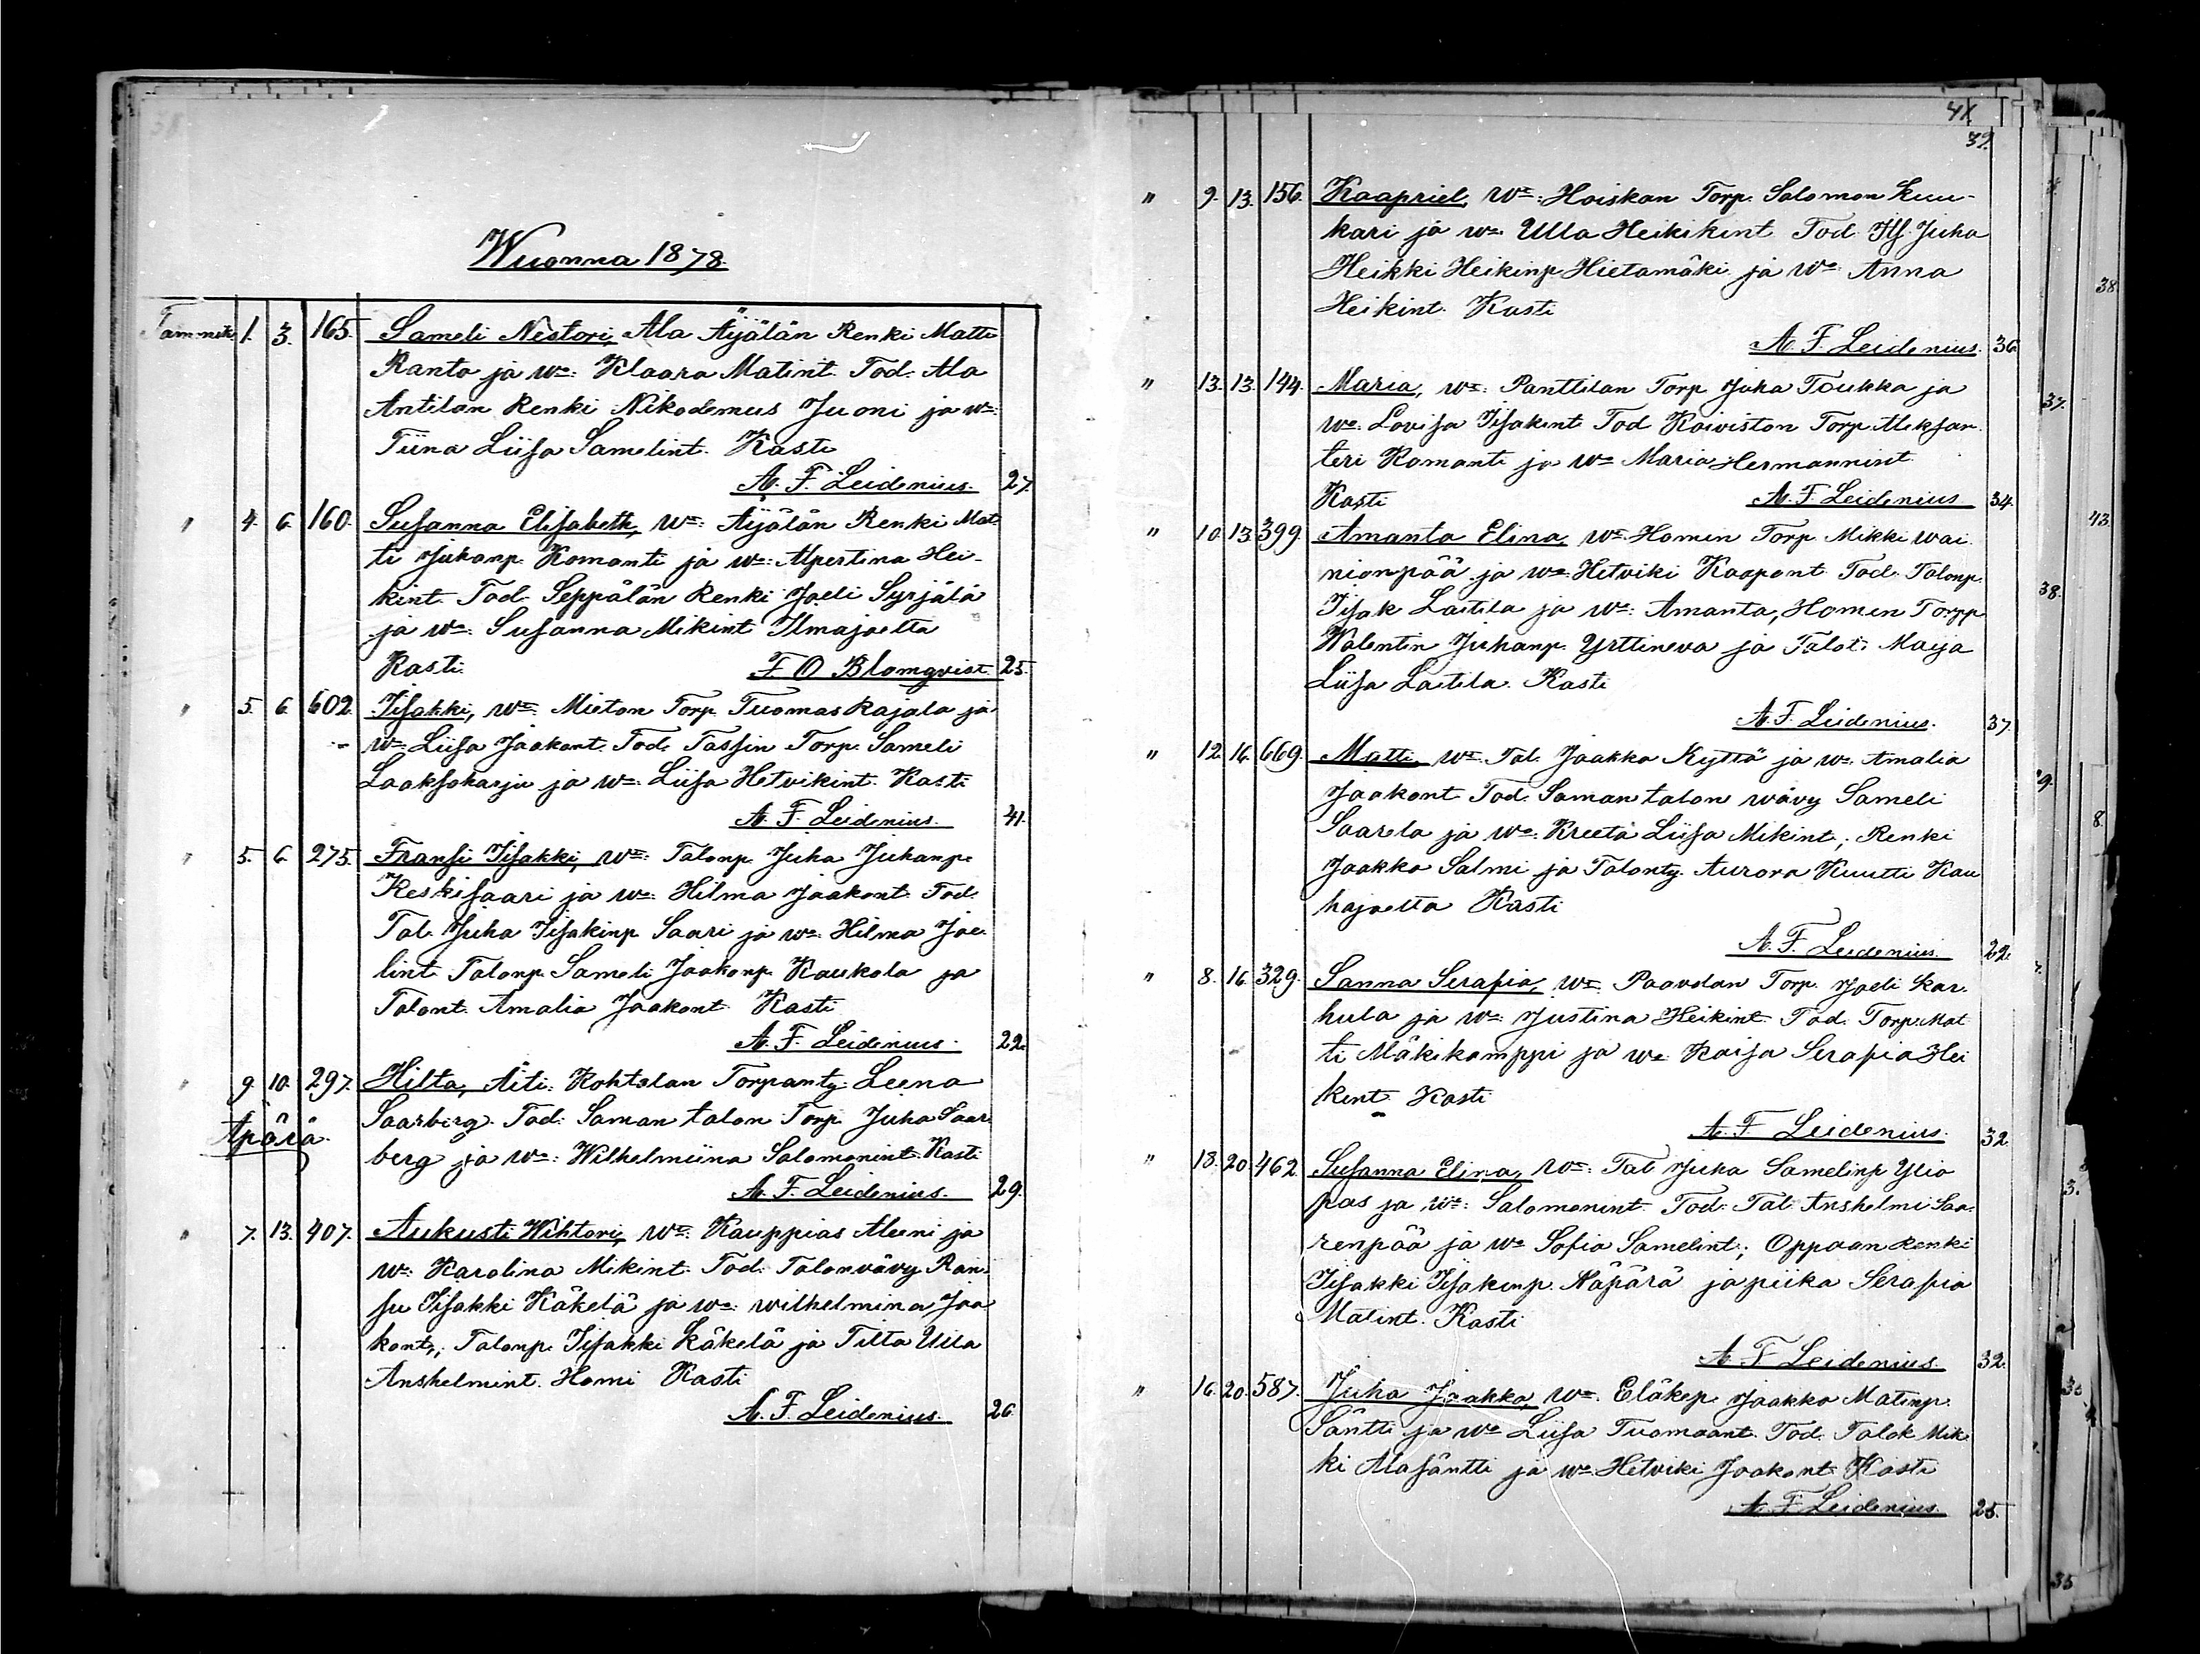 Wuonna 1878.
Tammik. 1. 3. 165. Sameli Nestori, Ala Äijälän Renki Matti
Ranta ja wa: Klaara Matint. Tod. Ala
Antilan Renki Nikodemus Juoni ja wa:
Tiina Liisa Samelint. Kasti
A. F. Leidenius. 27.
" 4. 6. 160. Susanna Elisabeth, Wm: Äijälän Renki Mat-
ti Juhanp. Komanti ja wa: Alpertina Hei-
kint. Tod. Seppälän Renki Joeli Syrjälä
ja wa: Susanna Mikint Ilmajoelta
Kasti. F O Blomqvist. 25.
" 5. 6. 602. Iisakki, Wm. Mieton Torp. Tuomas Rajala ja
wa: Liisa Jaakont. Tod. Tassin Torp. Sameli
Laaksoharju ja wa: Liisa Hetvikint. Kasti
A. F. Leidenius. 41.
" 5. 6. 275. Fransi Iisakki, Wm: Talonp. Juha Juhanp.
Keskisaari ja wa: Hilma Jaakont. Tod.
Tal. Juha Iisakinp. Saari ja wa: Hilma Joe-
lint. Talonp. Sameli Jaakonp. Kaukola ja
Talont. Amalia Jaakont. Kasti
A. F. Leidenius. 22.
" 9. 10. 297. Hilta, Äiti: Kohtalan Torpanty. Leena
Äpärä. Saarberg. Tod: Saman talon Torp. Juha Saar-
berg ja wa: Wilhelmiina Salomonint. Kasti
A. F. Leidenius. 29.
" 7. 13. 407. Aukusti Wihtori, Wm: Kauppias Aleeni ja
wa: Karolina Mikint. Tod: Talonvävy Ran-
su Iisakki Käkelä ja wa: wilhelmina Jaa
kont.; Talonp. Iisakki Käkelä ja Tilta Ulla
Anshelmint. Homi Kasti
A. F. Leidenius. 26.
41.
39.
" 9. 13. 156. Kaapriel, Wm: Hoiskan Torp. Salomon Kuu-
kari ja wa. Ulla Heikikint Tod. Its. Juha
Heikki Heikinp Hietamäki ja wa: Anna
Heikint. Kasti
A. F. Leidenius. 36.
" 13. 13. 144. Maria, wm: Panttilan Torp. Juha Toukka ja
wa: Lovisa Iisakint Tod Koiviston Torp. Aleksan-
teri Komanti ja wa Maria Hermannint.
Kasti A. F. Leidenius 34.
" 10. 13. 399. Amanta Elina, wm. Homin Torp. Mikki wai
nionpää ja wa: Hetviki Kaapont. Tod: Talonp.
Iisak Laitila ja wa: Amanta, Homin Torpp.
Walentin Juhanp. Yrttineva ja Talot. Maija
Liisa Laitila. Kasti
A. F. Leidenius. 37.
" 12. 16. 669. Matti, wm. Tal. Jaakko Kyttä ja wa. Amalia
Jaakont. Tod. Saman talon wävy Sameli
Saarela ja wa: Kreeta Liisa Mikint.; Renki
Jaakko Salmi ja Talonty. Aurora Kuutti Kau
hajoelta Kasti
A. F. Leidenius. 22.
" 8. 16. 329. Sanna Serafia, wm: Paavolan Torp. Joeli Kar-
hula ja wa: Justina Heikint. Tod. Torp. Mat
ti Mäkikamppi ja wa: Kaisa Serafia Hei
kint. Kasti
A. F. Leidenius. 32.
" 18. 20. 462. Susanna Elina, wm: Tal Juha Samelinp Ylio
pas ja wa: Salomonint. Tod: Tal. Anshelmi Saa-
renpää ja wa Sofia Samelint.; Oppaan Renki
Iisakki Iisakinp. Näpärä ja piika Serafia
Matint. Kasti
A. F. Leidenius. 32.
" 16. 20. 587. Juha Jaakko, wm. Eläkep. Jaakko Matinp.
Säntti ja wa Liisa Tuomaant. Tod. Talok Mik-
ki Alasäntti ja wa Hetviki Jaakont. Kasti
A. F. Leidenius. 25.